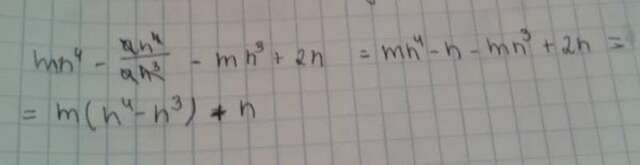 mn⁴ - an⁴/an³ - mn³ + 2n = mn⁴ - n - mn³ + 2n =
= m(n⁴ - n³) + n